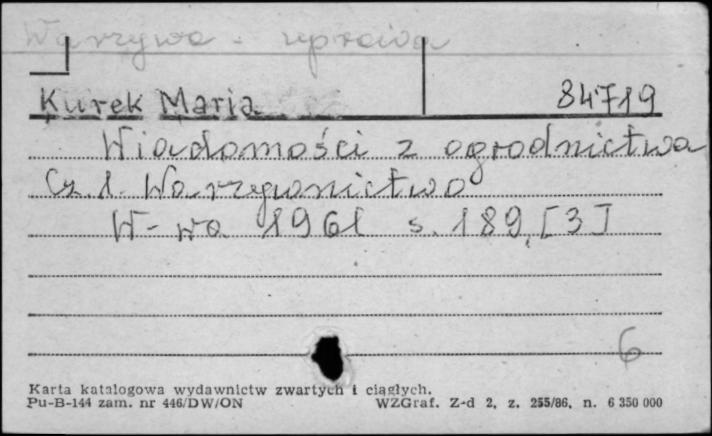 Warzywa - uprawa
Kurek Maria 84719
Wiadomości z ogrodnictwa
Cz. 1. Warzywnictwo
W-wa 1961 s. 189, [3]
6
Karta katalogowa wydawnictw zwartych i ciągłych.
Pu-B-144 zam. nr 446/DW/ON WZGraf. Z-d 2, z. 255/86, n. 6 350 000